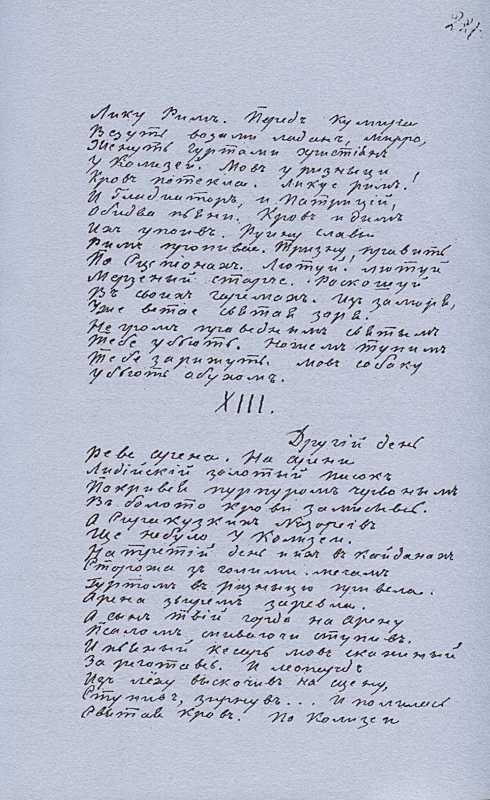 221
Лику Римъ. Передъ Кумира
Везуть возами ладан, мирро,
Женуть гуртами християнъ
У Колизей. Мовъ у ризныци
Кровъ потекла. Ликує Римъ!
И Гладиаторъ, и Патрицій,
Обидва пьяни. Кровъ и дымъ
Ихъ упоивъ. Руину славы
Римъ пропивае. Тризну править
По Сципіонахъ. Лютуй! лютуй
Мерзеный старче. Роскошуй
Въ своихъ гаремахъ. Изъ заморя,
Уже встае святая зоря.
Не громъ праведнымъ святымъ
Тебе убьють. Ножемъ тупимъ
Тебе зарижуть. Мовъ собаку
Убьють обухомъ.
XIII.
Другій день
Реве арена. На арени
Лидійскій золотый писокъ
Покривсь пурпуромъ червонымъ
Въ болото крови замисывсь.
А Сиракузкихъ Назореівъ
Ще небуло у Колизеи.
На третій день и ихъ в кайданахъ
Сторожа зъ голими мечамъ
Гуртомъ в ризныцю привела.
Арена звиремъ заревла.
А сынъ твій гордо на арену
Псаломъ спиваючи ступивъ.
И пьяный кесарь мовъ скажиный
Зареготавсь. И леопардъ
Изъ лёху выскочивъ на сцену,
Ступивъ, зирнувъ... И полилась
Святая кровъ. По Колизеи